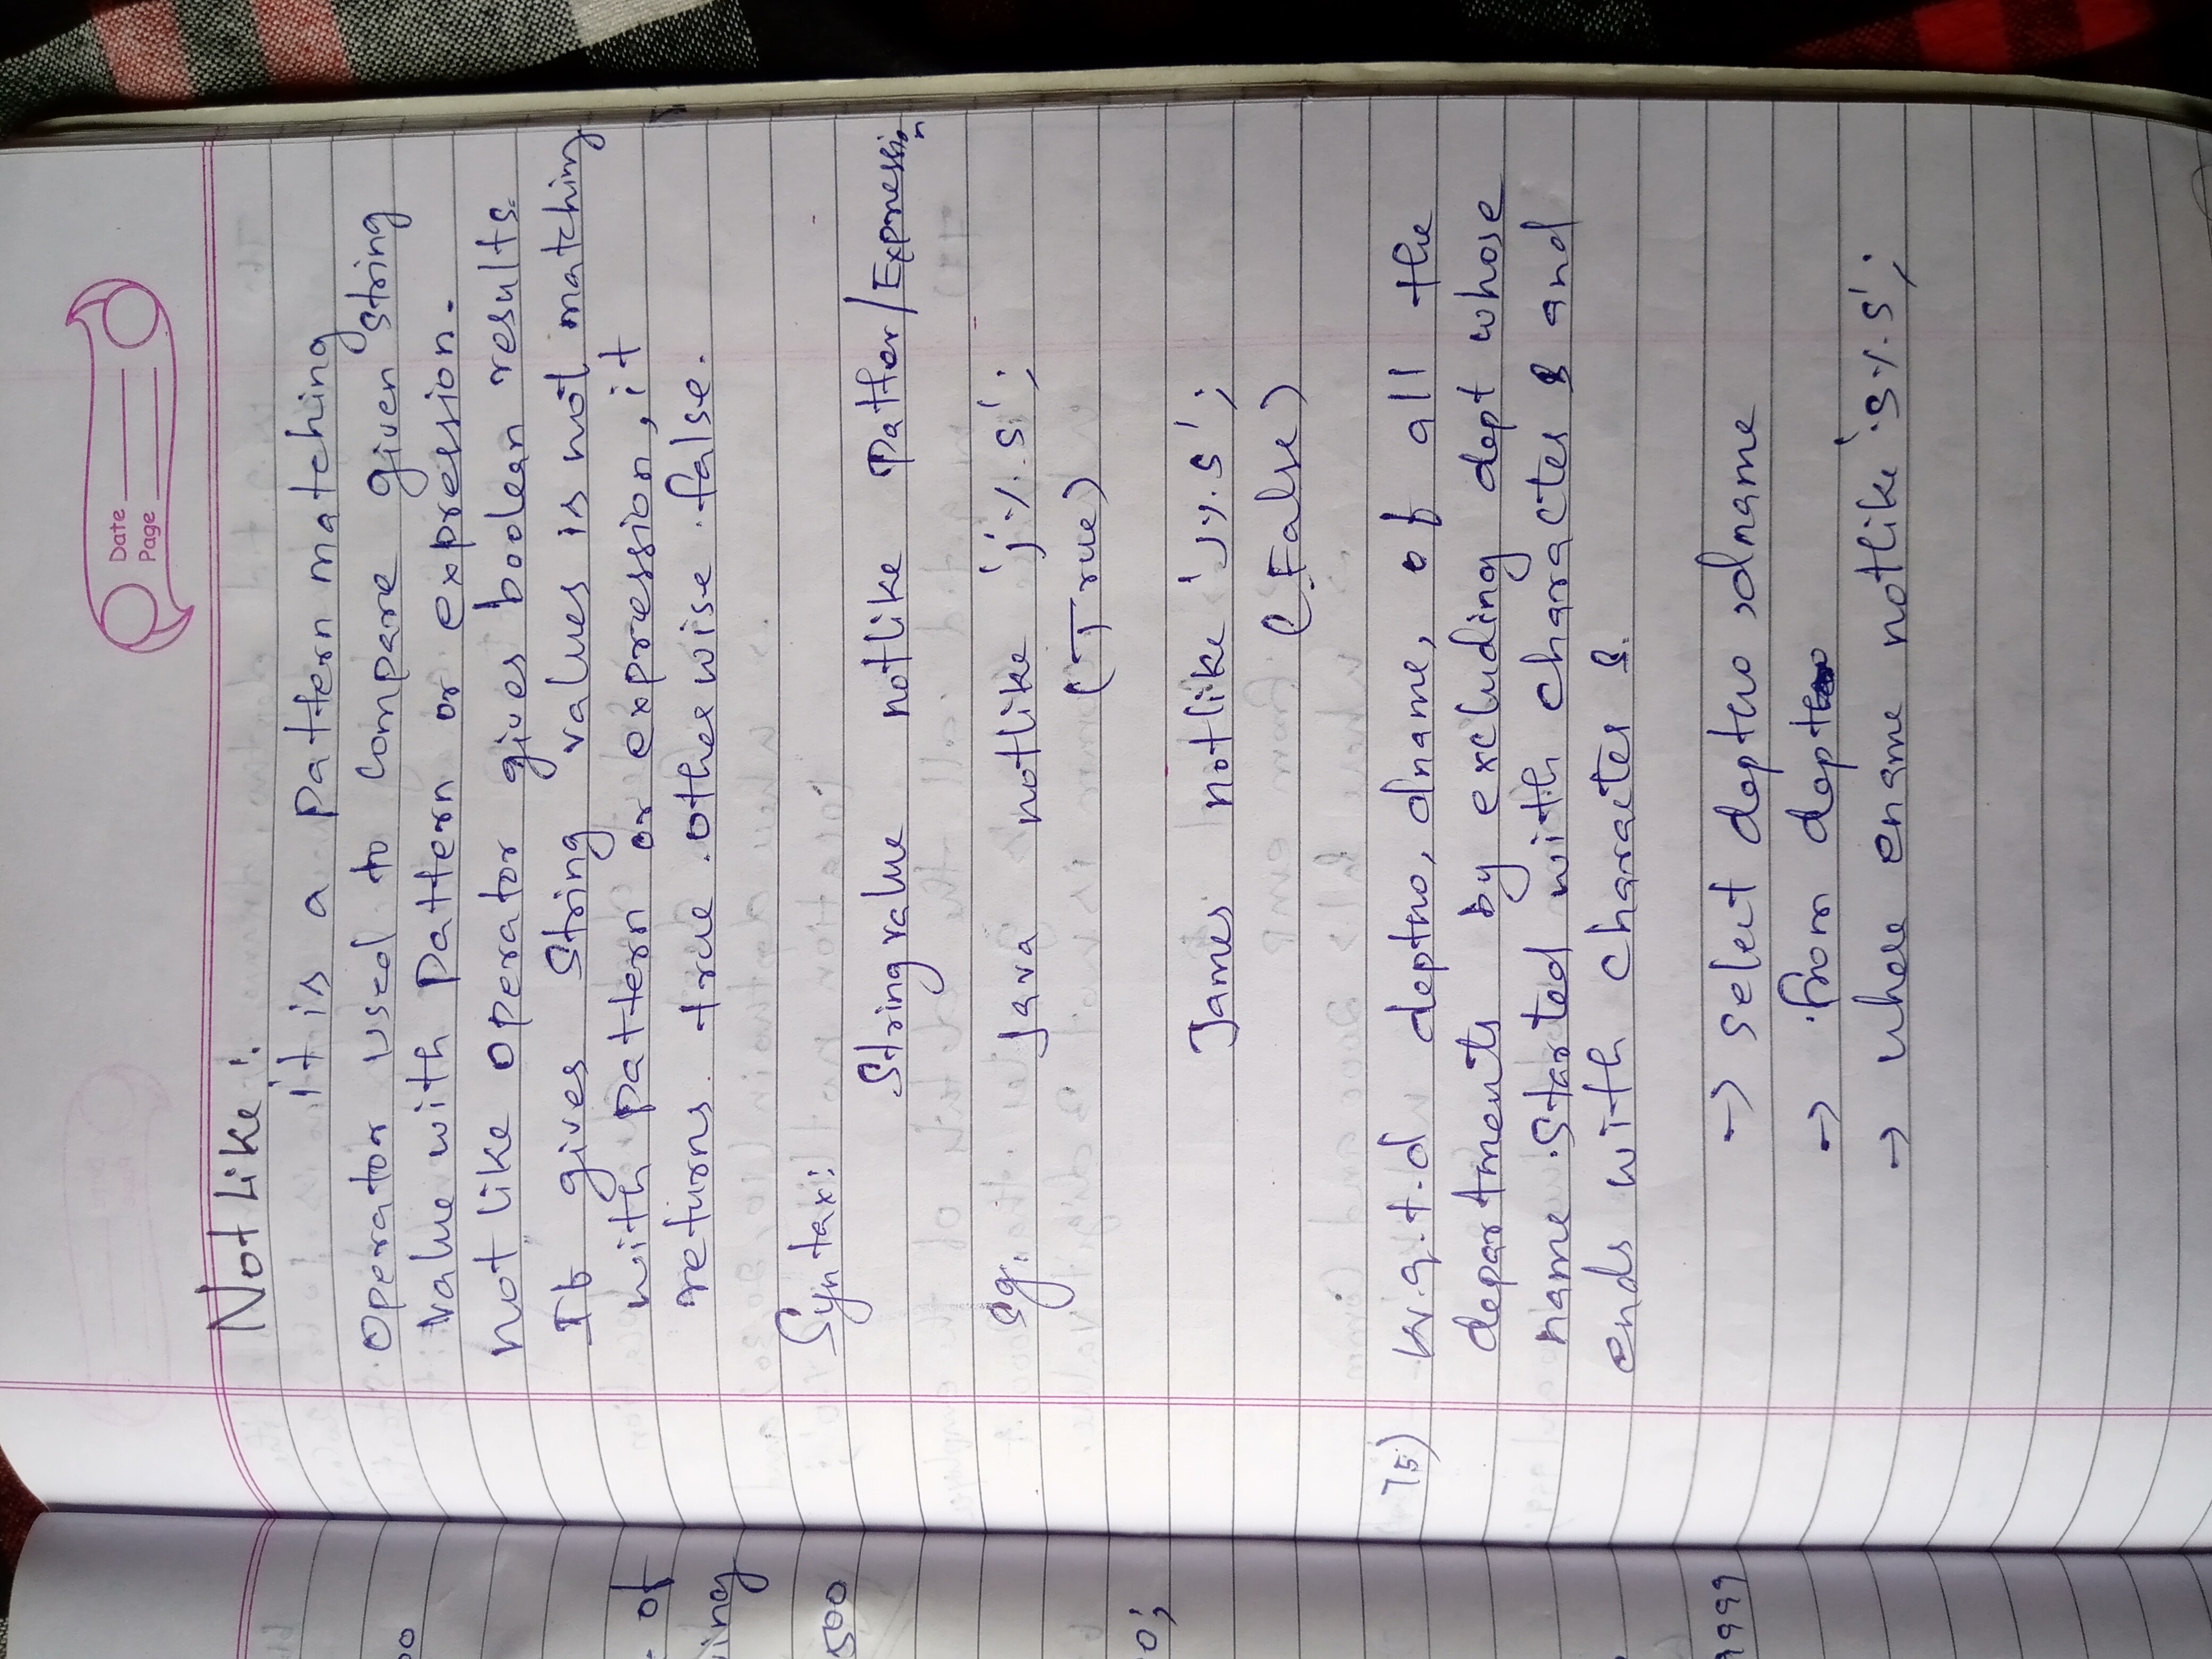 Date
Page
Not Like :
it is a Pattern matching
Operator used to Compare given string
value with Pattern or expression.
not like operator gives boolean results.
If gives String values is not matching
with pattern or expression, it
returns true otherwise false.
Syntax:
String value notlike Patter/Expression
eg. Java notlike 'j%s';
(True)
James notlike 'J%s';
(False)
75) W.q.t.d deptno, dname, of all the
departments by excluding dept whose
name started with character S and
ends with character S.
-> select deptno, dname
-> from dept
-> where ename notlike 'S%S';
00
of
ing
500
0;
9999